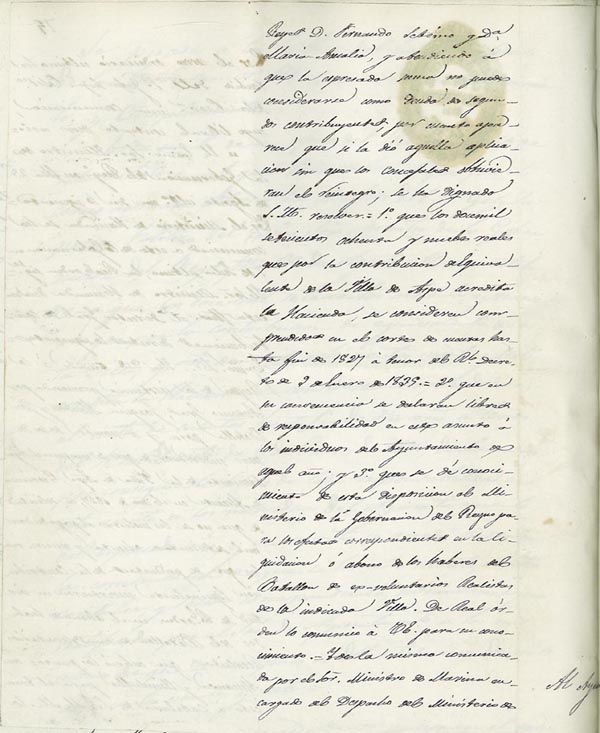 Reyes D. Fernando Sétimo y Dª
Maria Amalia, y atendiendo á
que la espresada suma no puede
considerarse como deuda de segun-
dos contribuyentes, por cuanto apare-
rece que si la dió aquella aplica-
cion sin que los concejales obtuvie-
ran el reintegro; se ha dignado
S. M. resolver = 1º que los docemil
setecientos ochenta y nuebe reales
que por la contribucion de Equiva-
lente de la Villa de Aspe acredita
la Hacienda, se consideren com-
prendidos en el corte de cuentas has-
ta fin de 1827 á tenor del Rl. decre-
to de 3 de Enero de 1835.= 2º que en
su consecuencia se declaren libres
de responsabilidad en este asunto á
los individuos del Ayuntamiento de
aquel año: y 3º que se dé conoci-
miento de esta disposicion al Mi-
nisterio de la Gobernacion del Reyno pa-
ra los efectos correspondientes en la li-
quidacion ó abono de los haberes del
Batallon de ex-voluntarios Realistas
de la indicada Villa. De Real ór-
den lo comunico á VE. para su cono-
cimiento.= Y de la misma comunica-
da por el Sor. Ministro de Marina en-
cargado del Despacho del Ministerio de
Al